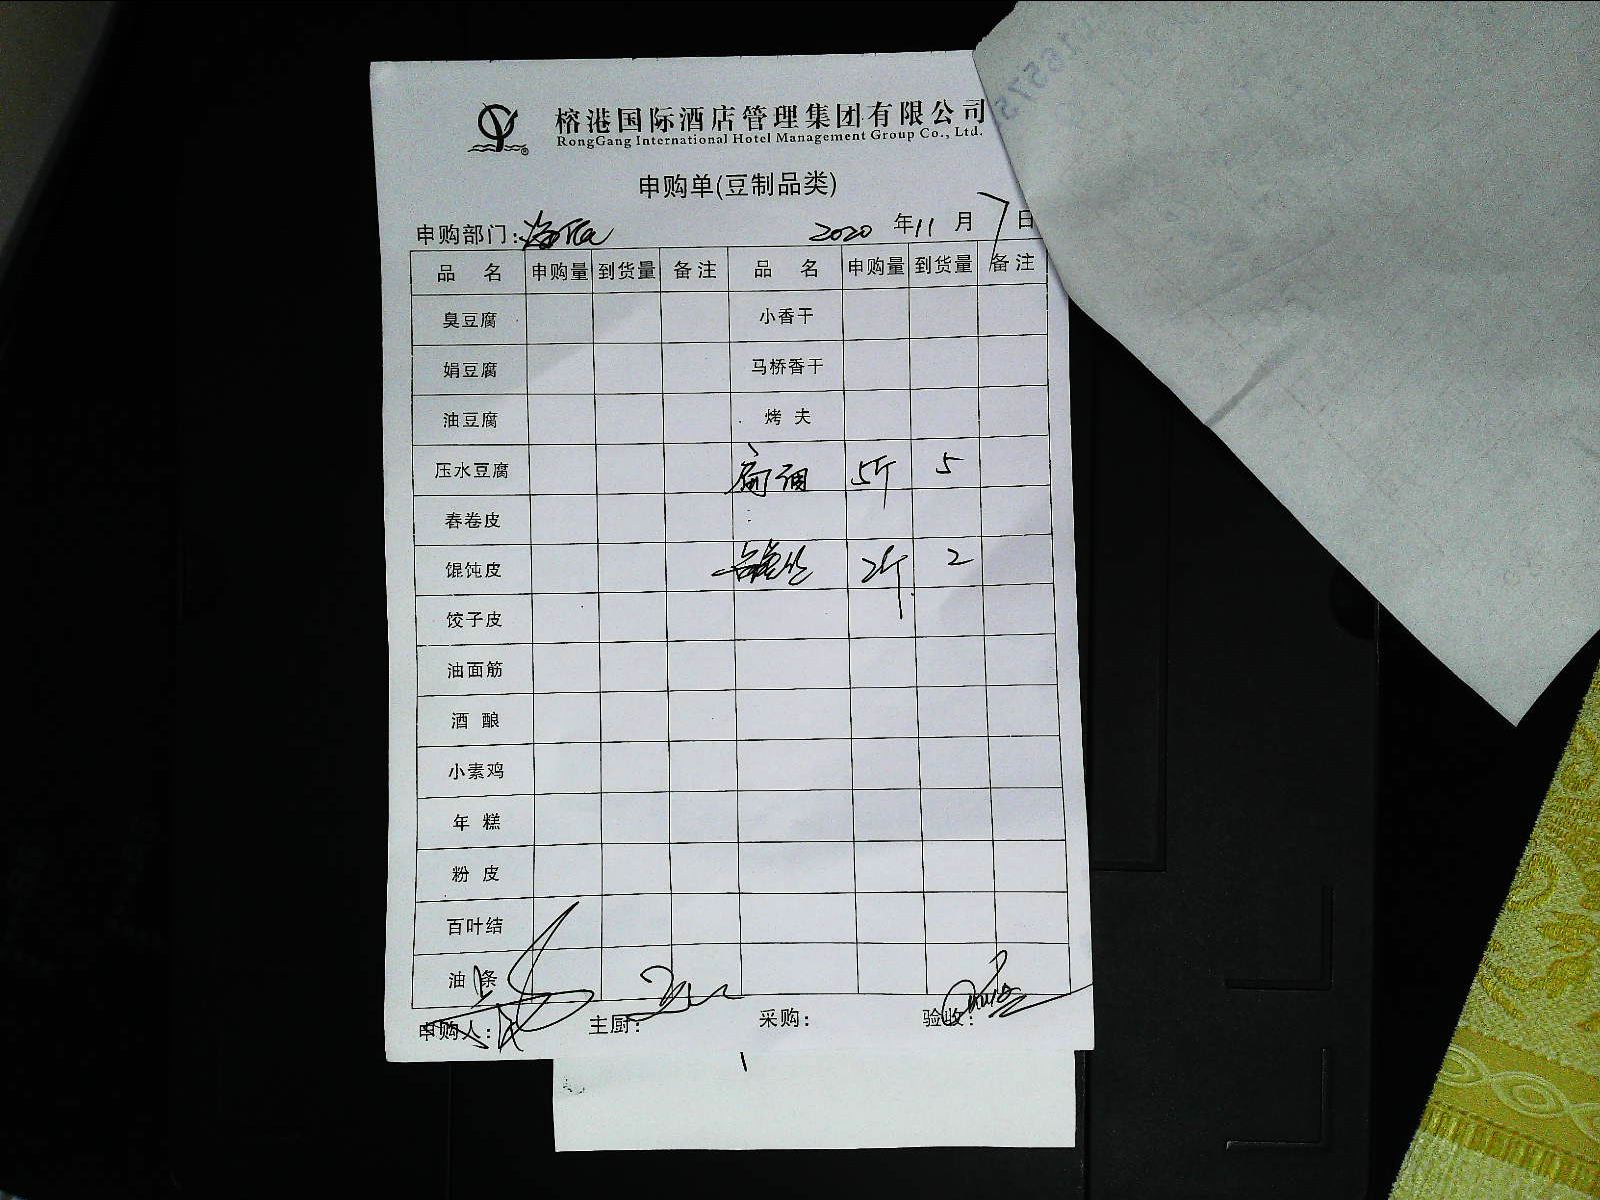 榕港国际酒店管理集团有限公司
RongGang International Hotel Management Group Co., Ltd.
申购单(豆制品类)
申购部门: 2020 年 11 月 7 日
品 名 申购量 到货量 备注 品 名 申购量 到货量 备注
臭豆腐 小香干
娟豆腐 马桥香干
油豆腐 烤 夫
压水豆腐 5斤 5
春卷皮
馄饨皮 2斤 2
饺子皮
油面筋
酒 酿
小素鸡
年 糕
粉 皮
百叶结
油 条
申购人: 主厨: 采购: 验收: